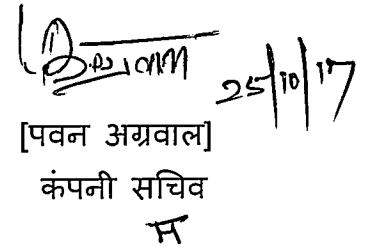 25/10/17
[पवन अग्रवाल]
कंपनी सचिव